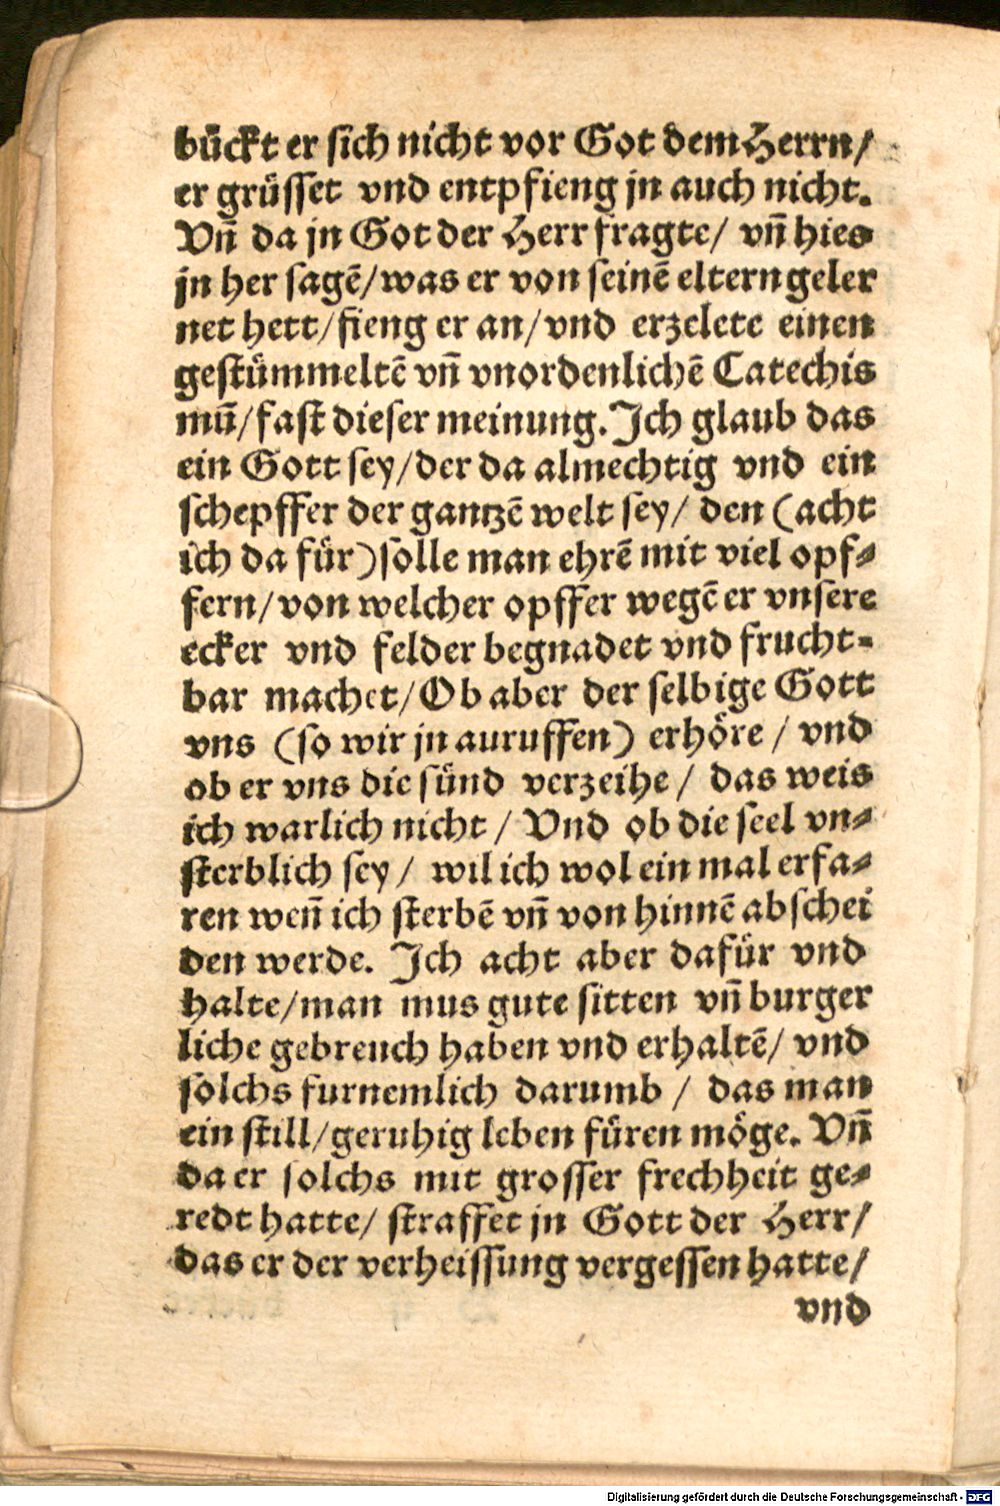 bückt er sich nicht vor Got dem Herrn/
er grüsset vnd entpfieng jn auch nicht.
Vn̄ da jn Got der Herr fragte/ vn̄ hies
jn her sagē/was er von seinē eltern geler
net hett/fieng er an/vnd erzelete einen
gestümmeltē vn̄ vnordenlichē Catechis
mū/fast dieser meinung. Ich glaub das
ein Gott sey/der da almechtig vnd ein
schepffer der gantzē welt sey/ den (acht
ich da für) solle man ehrē mit viel opf⸗
fern/von welcher opffer wegē er vnsere
ecker vnd felder begnadet vnd frucht⸗
bar machet/Ob aber der selbige Gott
vns (so wir jn auruffen) erhöre / vnd
ob er vns die sünd verzeihe / das weis
ich warlich nicht / Vnd ob die seel vn⸗
sterblich sey / wil ich wol ein mal erfa⸗
ren wen̄ ich sterbē vn̄ von hinnē abschei
den werde. Ich acht aber dafür vnd
halte/man mus gute sitten vn̄ burger
liche gebreuch haben vnd erhaltē/ vnd
solchs furnemlich darumb / das man
ein still/geruhig leben füren möge. Vn̄
da er solchs mit grosser frechheit ge⸗
redt hatte/ straffet jn Gott der Herr/
das er der verheissung vergessen hatte/
vnd
Digitalisierung gefördert durch die Deutsche Forschungsgemeinschaft - DFG